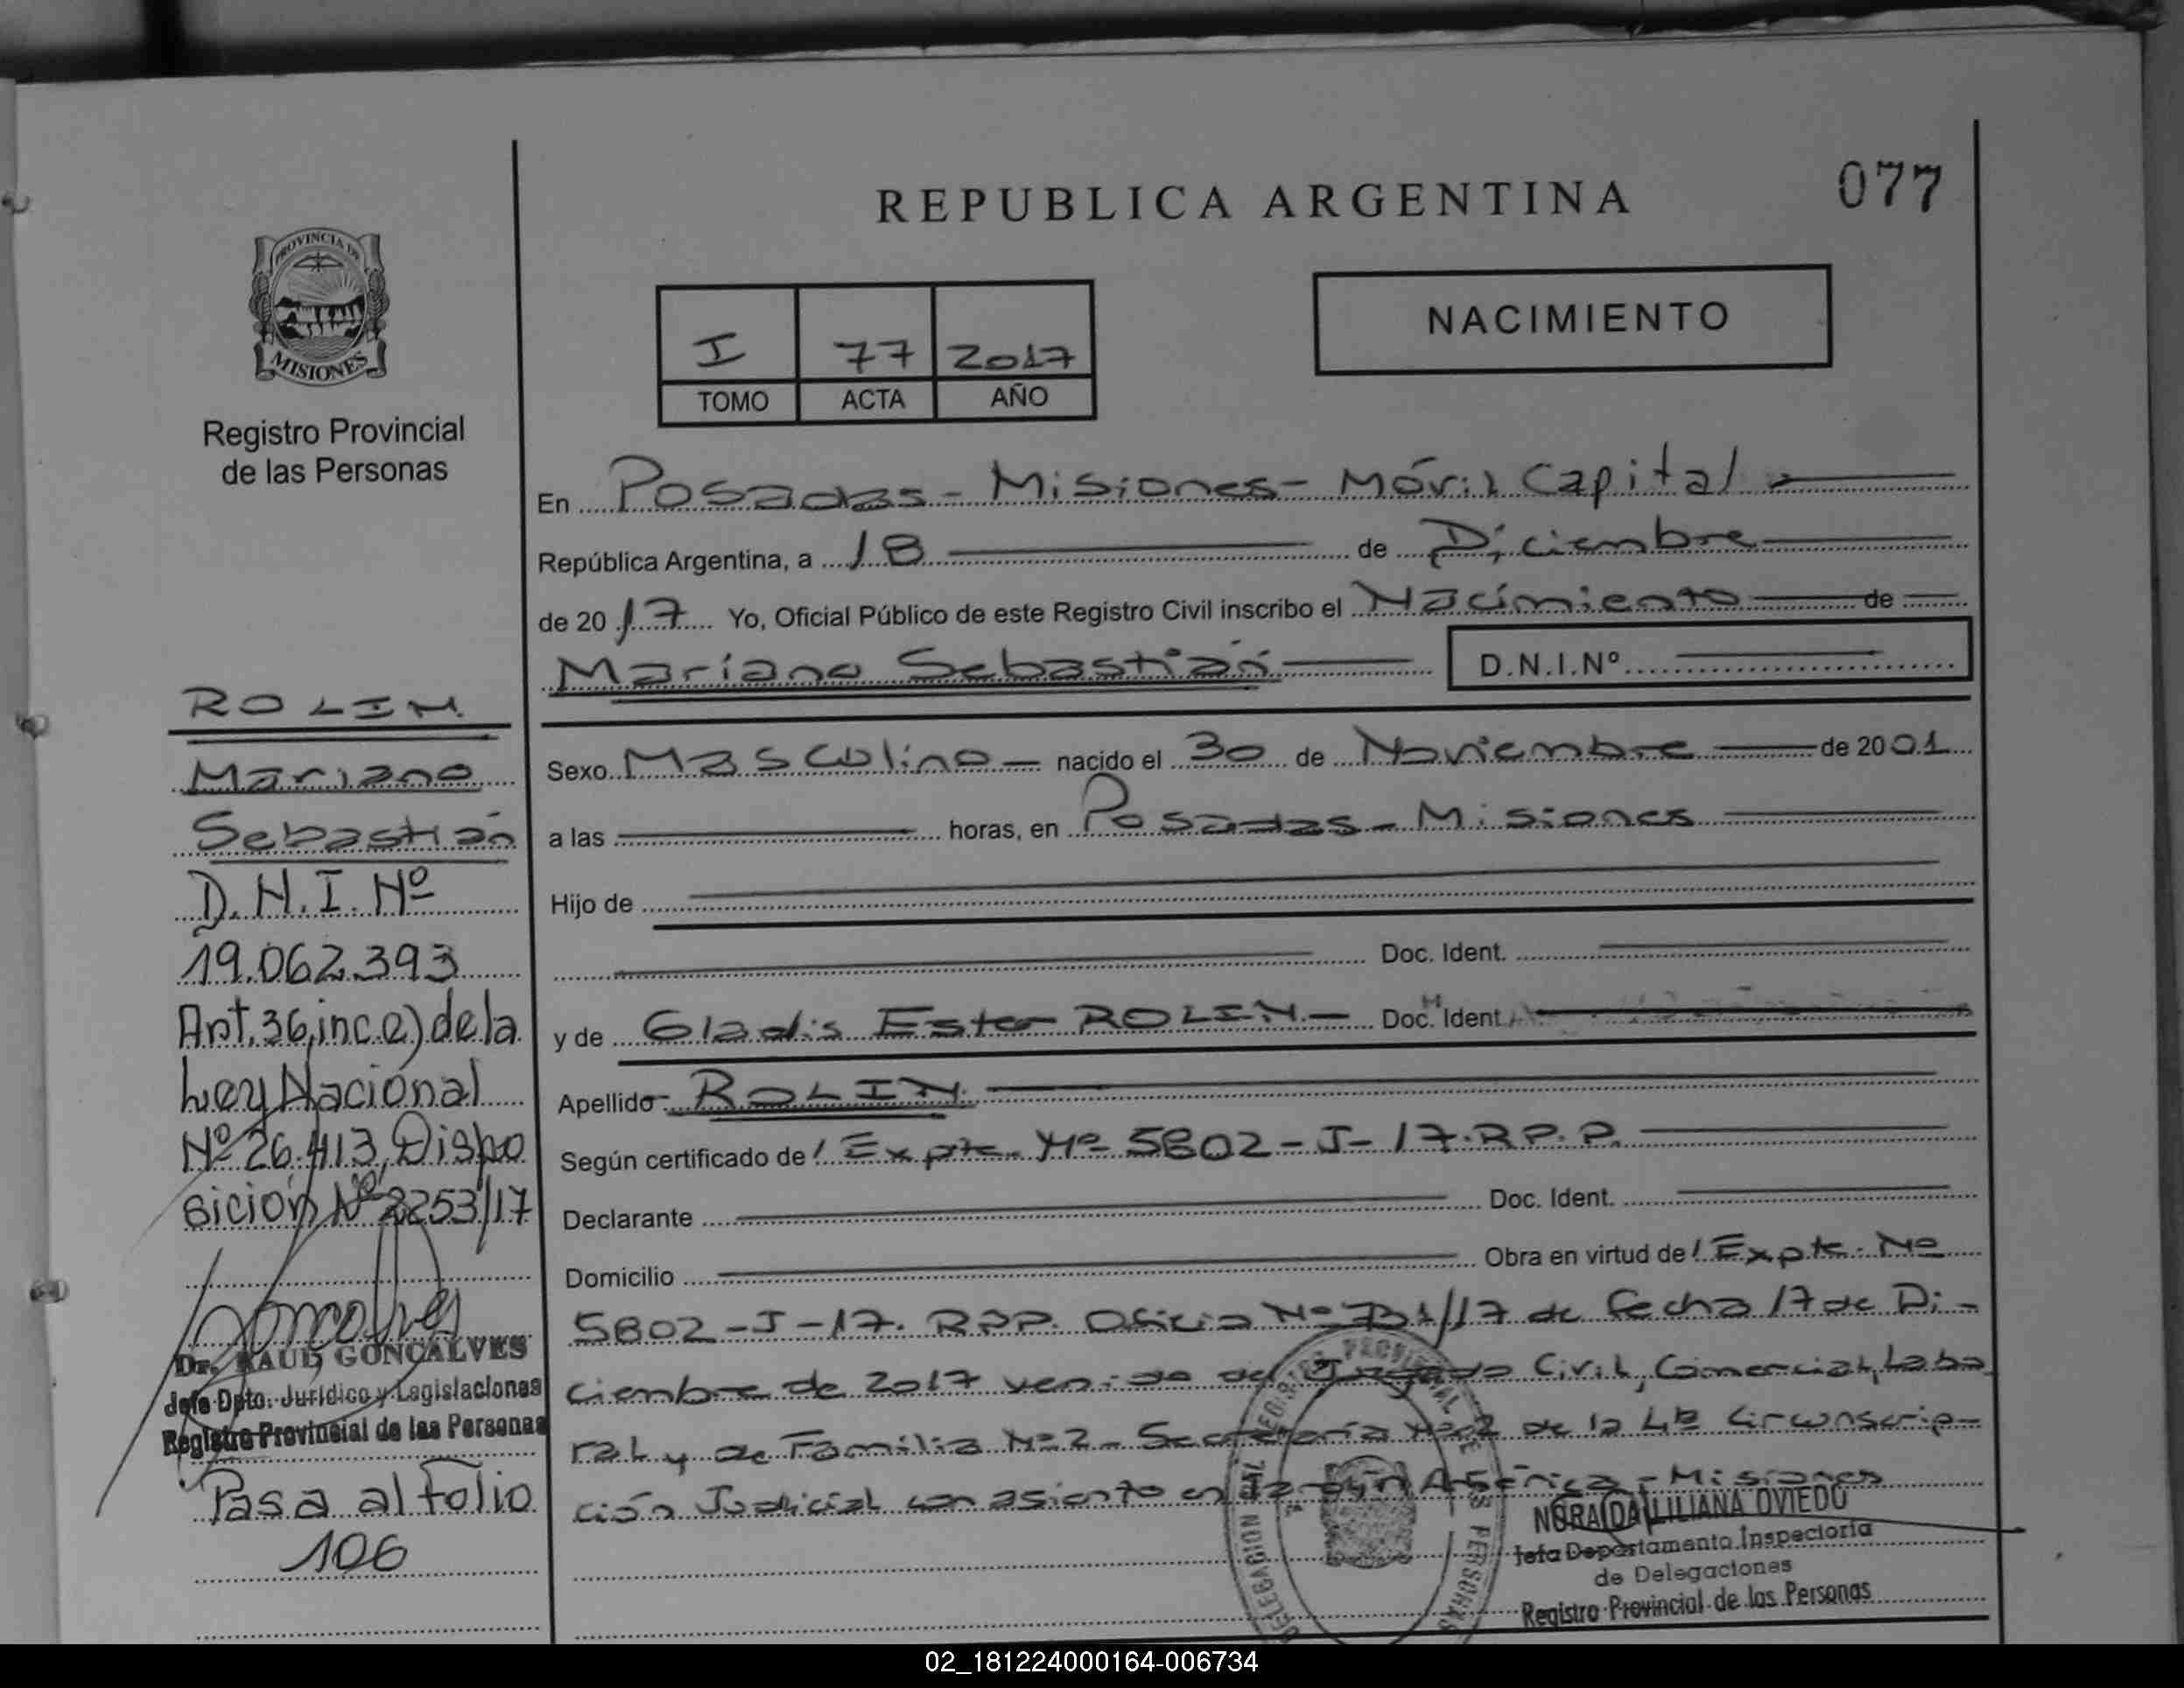 REPUBLICA ARGENTINA
077
PROVINCIA DE
MISIONES
Registro Provincial
de las Personas
I 77 2017
TOMO ACTA AÑO
NACIMIENTO
En Posadas - Misiones - Móvil Capital
República Argentina, a 18 de Diciembre
de 2017 Yo, Oficial Público de este Registro Civil inscribo el Nacimiento de
Mariano Sebastián D.N.I.Nº
Sexo Masculino nacido el 30 de Noviembre de 2001
a las horas, en Posadas - Misiones
Hijo de
Doc. Ident.
y de Gladis Ester ROLIN Doc. Ident.
Apellido ROLIN
Según certificado de Expte. Nº 5802-J-17.R.P.P.
Declarante Doc. Ident.
Domicilio Obra en virtud de Expte. Nº
5802-J-17. R.P.P. Oficio Nº 731/17 de fecha 17 de Di-
ciembre de 2017 venido del Juzgado Civil, Comercial, Labo
ral y de Familia Nº 2 - Secretaría Nº 2 de la 4ta Circunscrip-
ción Judicial con asiento en Jardín América - Misiones
NORA IDA LILIANA OVIEDO
Jefa Departamento Inspectoria
de Delegaciones
Registro Provincial de las Personas
ROLIN
Mariano
Sebastián
D.N.I. Nº
19.062.393
Art. 36, inc. e) de la
Ley Nacional
Nº 26.413, Dispo
sición Nº 2253/17
Dr. RAUL GONCALVES
Jefe Dpto. Jurídico y Legislaciones
Registro Provincial de las Personas
Pasa al Folio
106
02_181224000164-006734